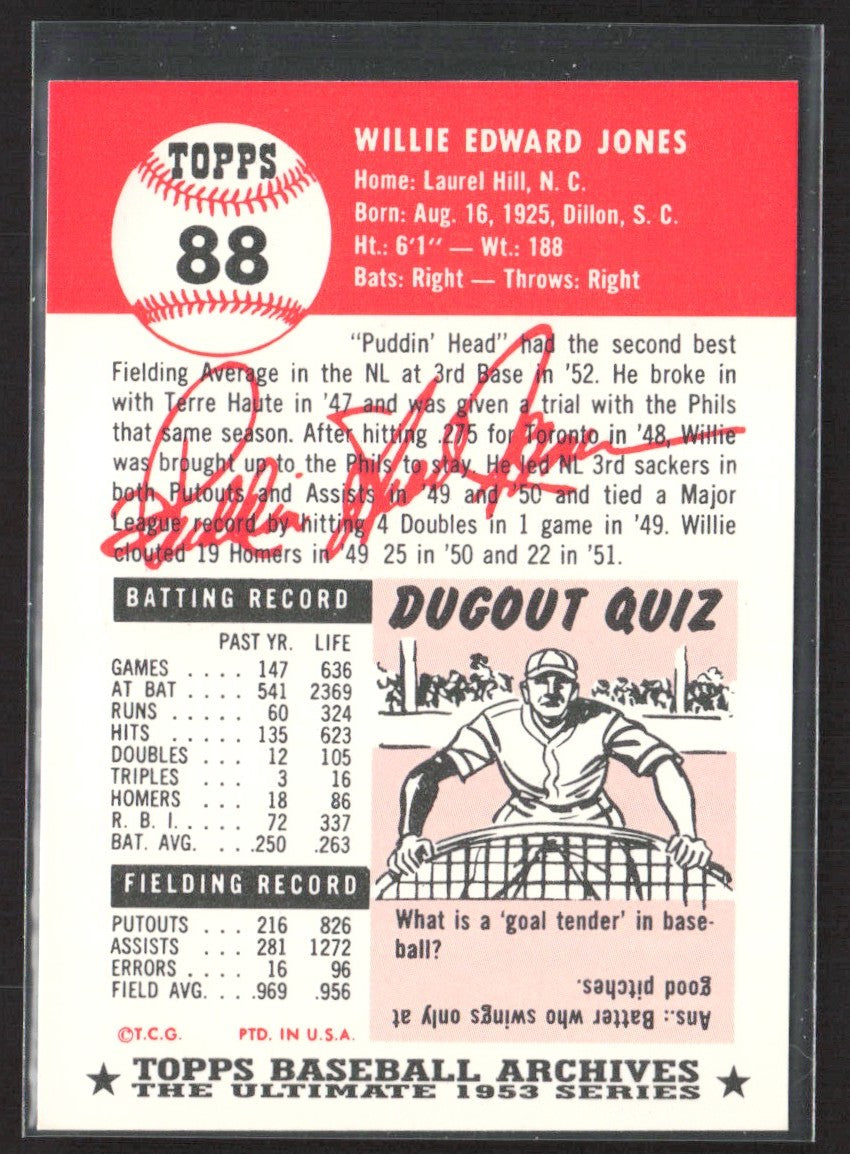 TOPPS
88
WILLIE EDWARD JONES
Home: Laurel Hill, N. C.
Born: Aug. 16, 1925, Dillon, S. C.
Ht.: 6'1" — Wt.: 188
Bats: Right — Throws: Right
"Puddin' Head" had the second best
Fielding Average in the NL at 3rd Base in '52. He broke in
with Terre Haute in '47 and was given a trial with the Phils
that same season. After hitting .275 for Toronto in '48, Willie
was brought up to the Phils to stay. He led NL 3rd sackers in
both Putouts and Assists in '49 and '50 and tied a Major
League record by hitting 4 Doubles in 1 game in '49. Willie
clouted 19 Homers in '49 25 in '50 and 22 in '51.
Puddin Head Jones
BATTING RECORD
PAST YR. LIFE
GAMES .... 147 636
AT BAT .... 541 2369
RUNS ..... 60 324
HITS ..... 135 623
DOUBLES .. 12 105
TRIPLES ... 3 16
HOMERS ... 18 86
R. B. I. .... 72 337
BAT. AVG. ... .250 .263
FIELDING RECORD
PUTOUTS ... 216 826
ASSISTS ... 281 1272
ERRORS .... 16 96
FIELD AVG. ... .969 .956
©T.C.G. PTD. IN U.S.A.
DUGOUT QUIZ
What is a 'goal tender' in base-
ball?
Ans.: Batter who swings only at
good pitches.
★ TOPPS BASEBALL ARCHIVES ★
THE ULTIMATE 1953 SERIES